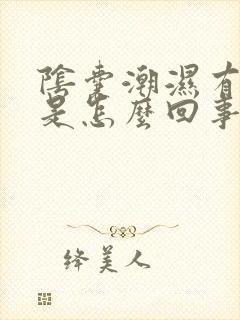 陰囊潮濕有
是怎麼回事
絳美人